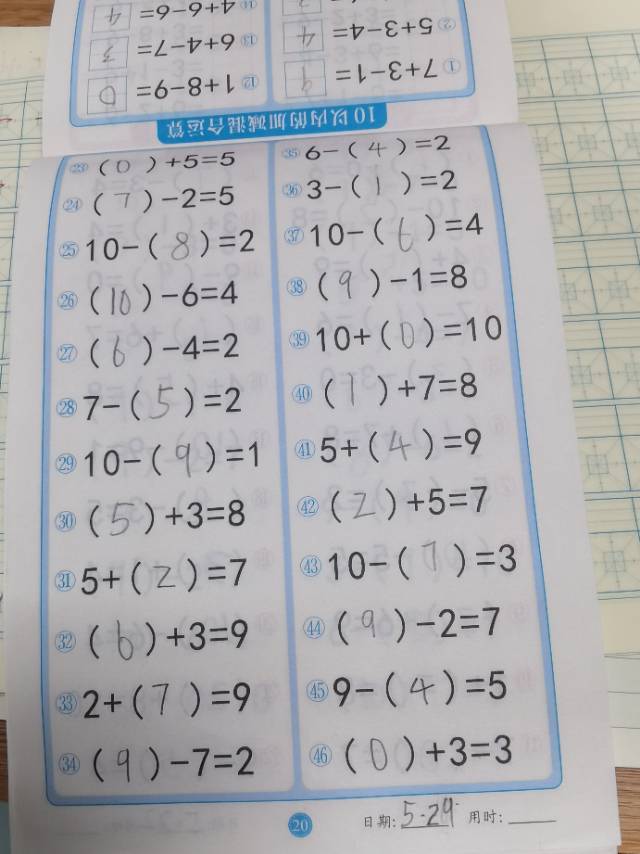 10以内的加减混合运算
① 7+3−1= 9
② 5+3−4= 4
⑫ 1+8−9= 0
⑬ 6+4−7= 3
⑭ 4+6−6= 4
㉓ (0)+5=5
㉔ (7)−2=5
㉕ 10−(8)=2
㉖ (10)−6=4
㉗ (6)−4=2
㉘ 7−(5)=2
㉙ 10−(9)=1
㉚ (5)+3=8
㉛ 5+(2)=7
㉜ (6)+3=9
㉝ 2+(7)=9
㉞ (9)−7=2
㉟ 6−(4)=2
㊱ 3−(1)=2
㊲ 10−(6)=4
㊳ (9)−1=8
㊴ 10+(0)=10
㊵ (1)+7=8
㊶ 5+(4)=9
㊷ (2)+5=7
㊸ 10−(7)=3
㊹ (9)−2=7
㊺ 9−(4)=5
㊻ (0)+3=3
20 日期: 5.29 用时: